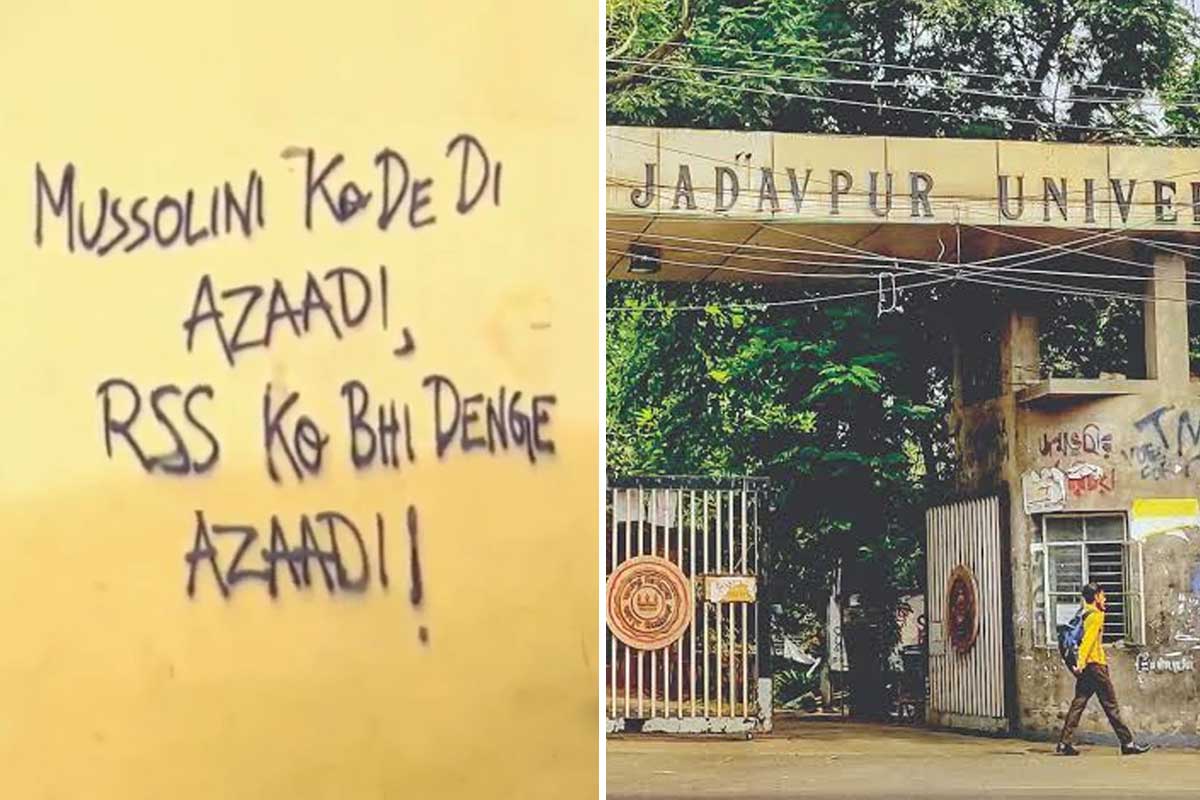 MUSSOLINI KO DE DI
AZAADI,
RSS KO BHI DENGE
AZAADI!
JADAVPUR UNIVE